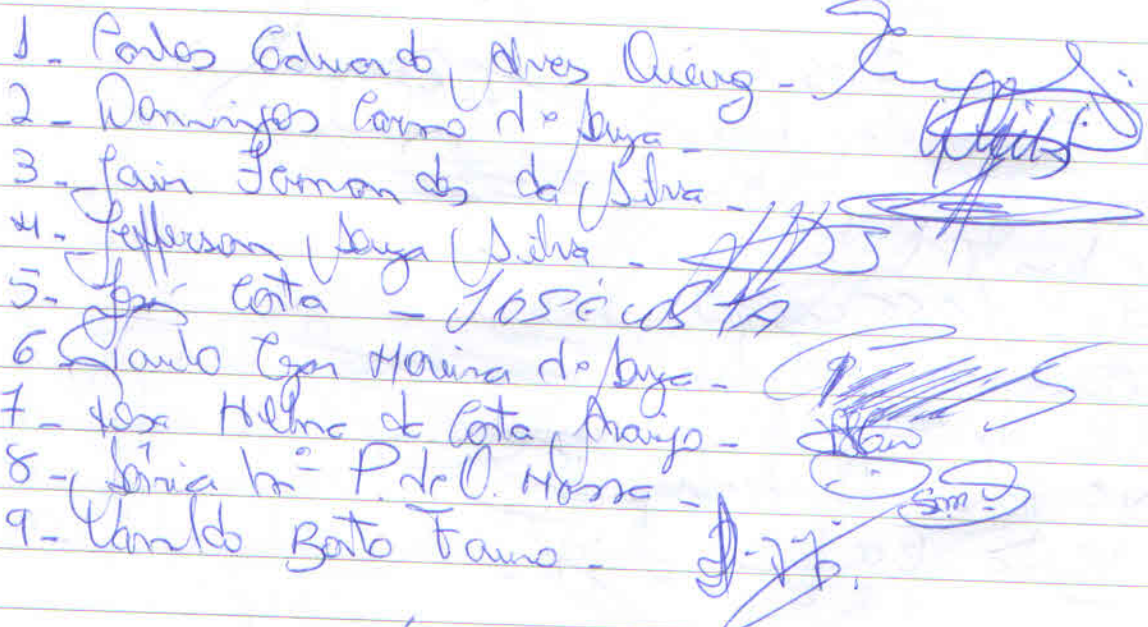 1 - Carlos Eduardo Alves Queiroz -
2 - Domingos Carmo de Souza -
3 - Jair Fernandes da Silva -
4 - Jefferson Souza Silva -
5 - José Costa - JOSÉ COSTA
6 - Paulo Moreira de Souza -
7 - Rosa Helena da Costa Araujo -
8 - Sônia Mª P. de O. -
9 - Bento -